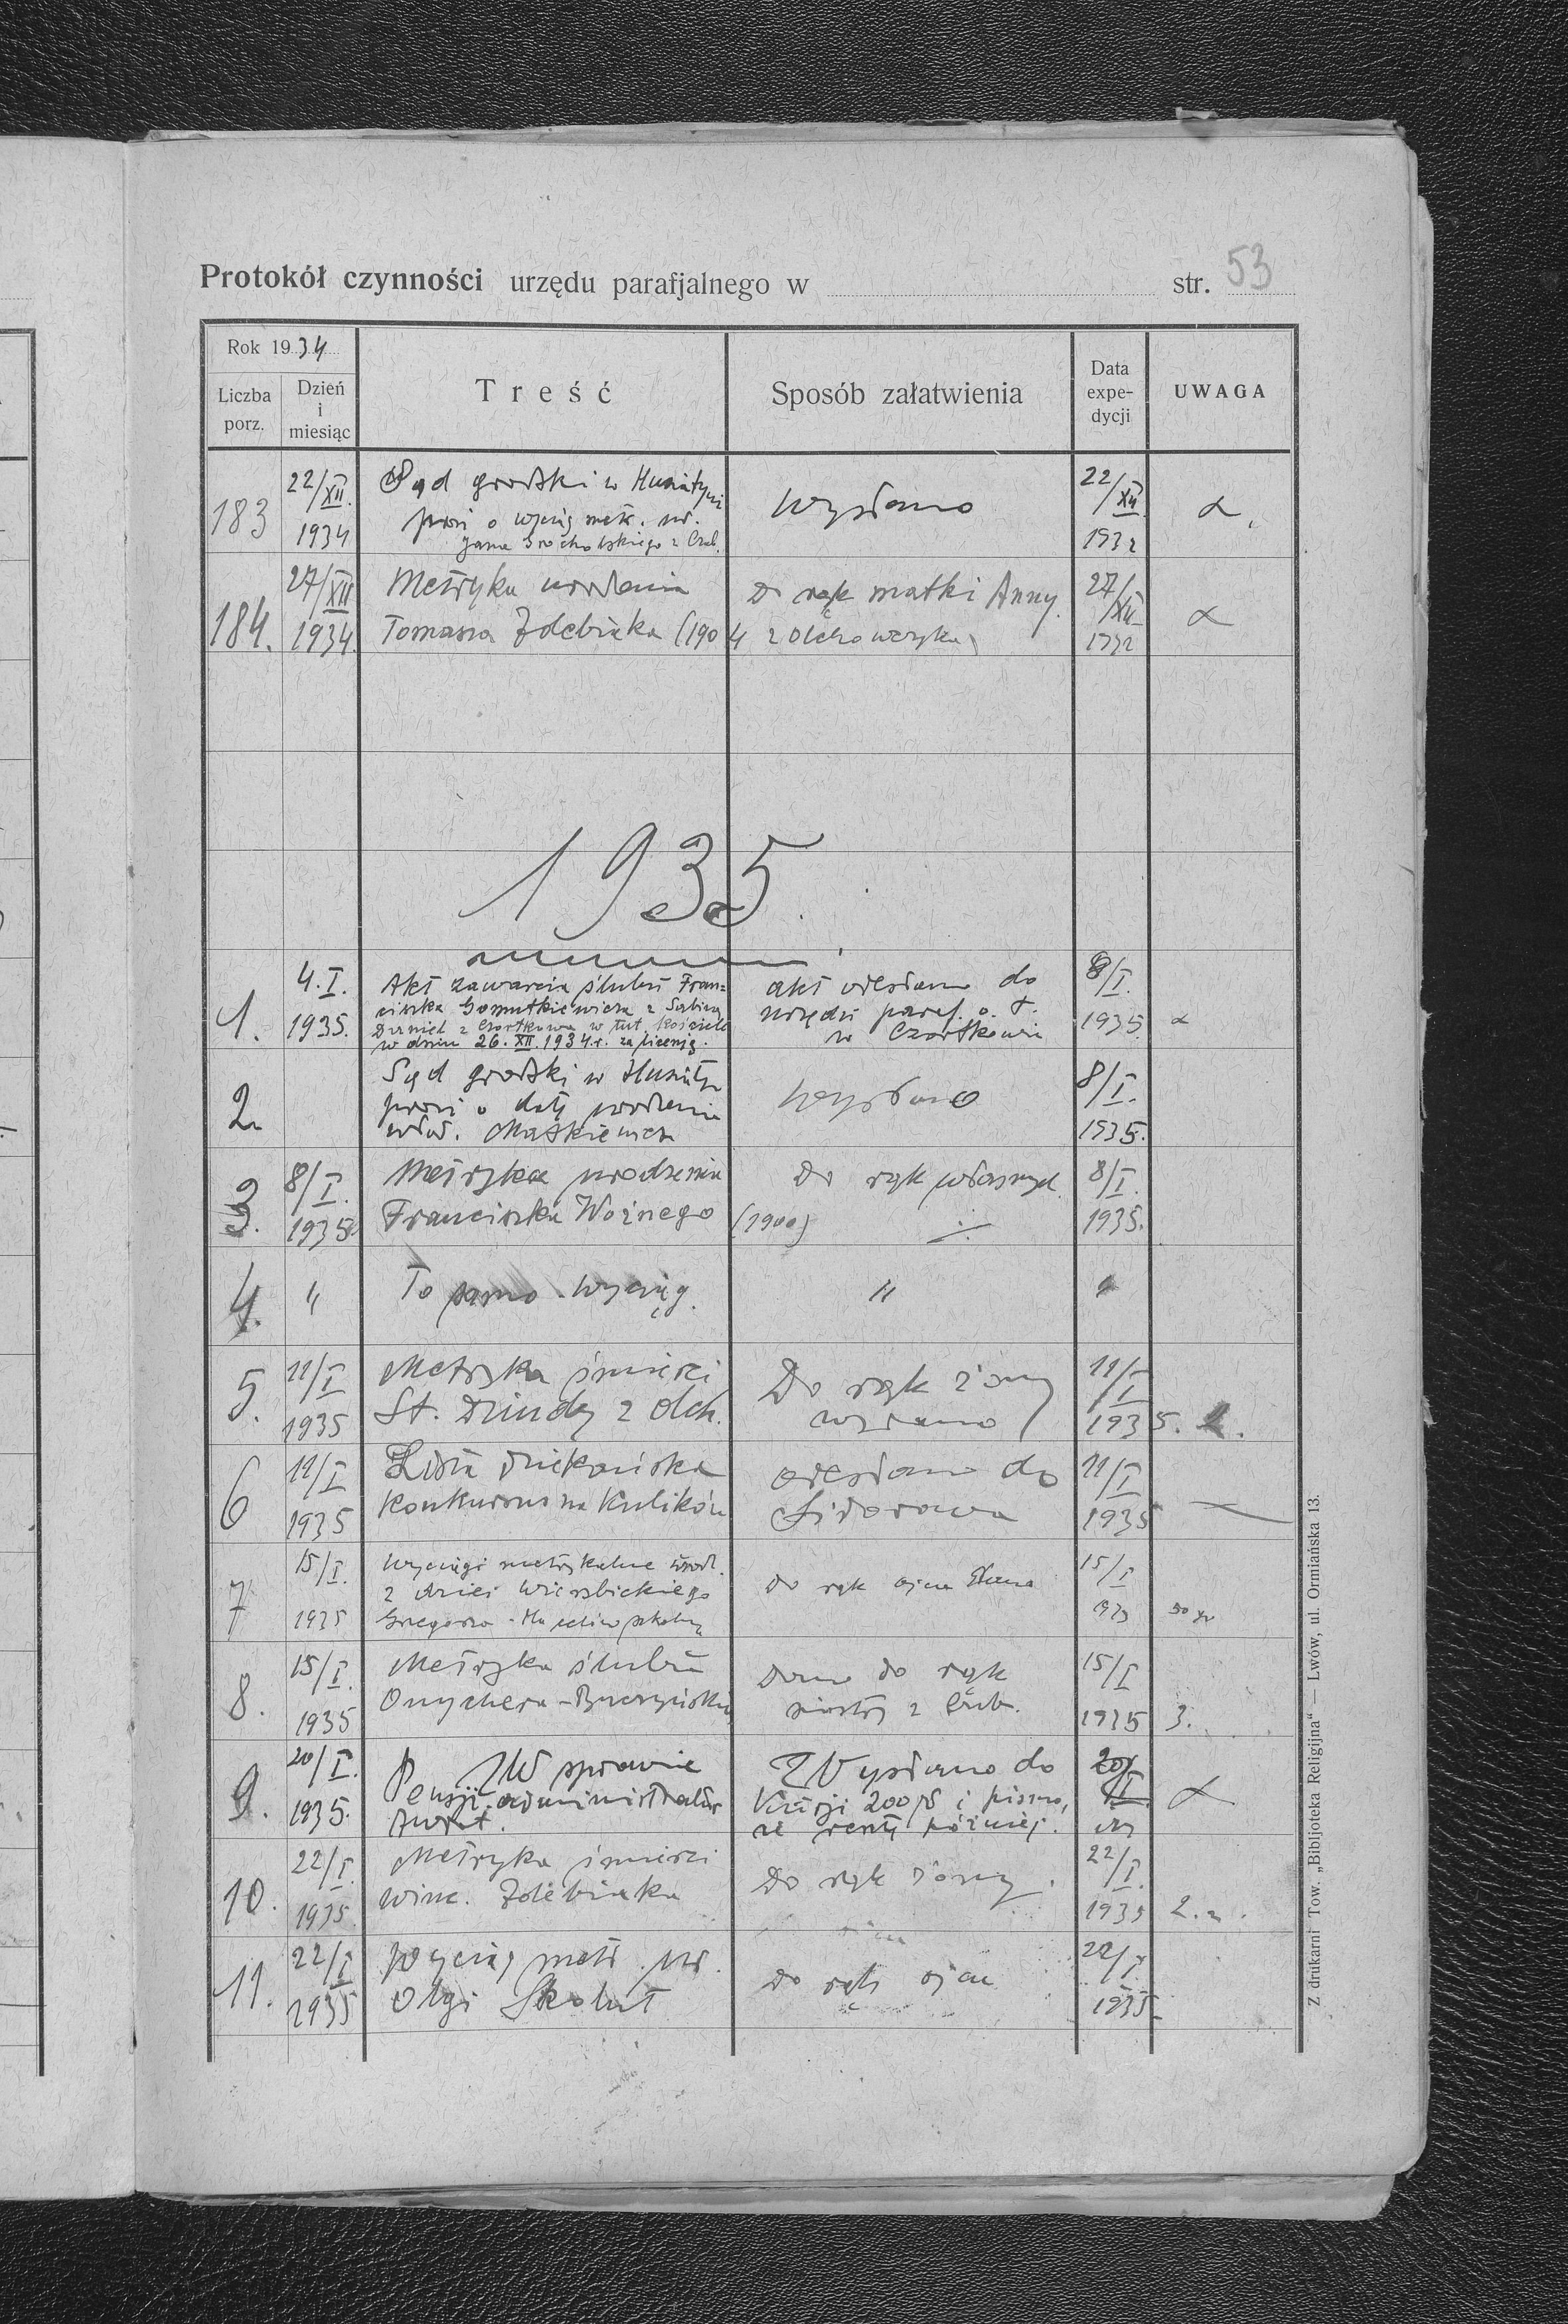 Protokół czynności urzędu parafjalnego w str. 53
Rok 1934
Liczba porz.
Dzień i miesiąc
Treść
Sposób załatwienia
Data expe-
dycji
UWAGA
183
22/XII.
1934
Sąd grodzki w Husiatyni
prosi o wyciąg metr. ur.
Jana Grocholskiego z Czab.
wysłano
22/XII
1932
α.
184.
27/XII
1934.
Metryka urodzenia
Tomasza Zdebiaka (1904 z Olchowczyka)
Do rąk matki Anny.
27/XII
1932
α
1935.
1.
4.I.
1935.
Akt zawarcia ślubu Fran=
ciszka Gomutkiewicza z Sabiną
Daniel z Czortkowa w tut. kościele
w dniu 26.XII.1934.r. za licencją.
akt odesłano do
urzędu paraf. o. ł.
w Czortkowie
8/I.
1935
α
2.
Sąd grodzki w Husiaty
prosi o datę urodzenia
Matkiewicza
wysłano
8/I.
1935.
3.
8/I.
1935
Metryka urodzenia
Franciszka Woźnego (1900)
Do rąk własnych.
8/I.
1935.
4.
"
To samo wyciąg.
"
"
5.
11/I
1935
Metryka śmierci
St. Dziudy z Olch.
Do rąk żony
wydano
11/I
1935.
6
11/I
1935
Lista dziekańska
konkursu na Kulików
odesłano do
Sidorowa
11/I
1935
7
15/I.
1935
Wyciągi metrykalne urodz.
z dzieci Wierzbickiego
Grzegorza - Na celów szkolny
do rąk ojca
15/I
1935
50 gr
8.
15/I.
1935
Metryka ślubu
Dano do rąk
siostry z
15/I
1935
3.
9.
20/I.
1935.
W sprawie
Pensji administrator
Wysłano do
Kurji 200 zł i pismo,
że resztę później.
20/I
α
10.
22/I.
1935.
Metryka śmierci
Winc. Zdebiaka
Do rąk żony.
22/I.
1935
11.
22/I
1935
Wyciąg metr. ur.
Olgi Skolut
do rąk ojca
22/I.
1935
Z drukarni Tow. „Bibljoteka Religijna“ — Lwów, ul. Ormiańska 13.